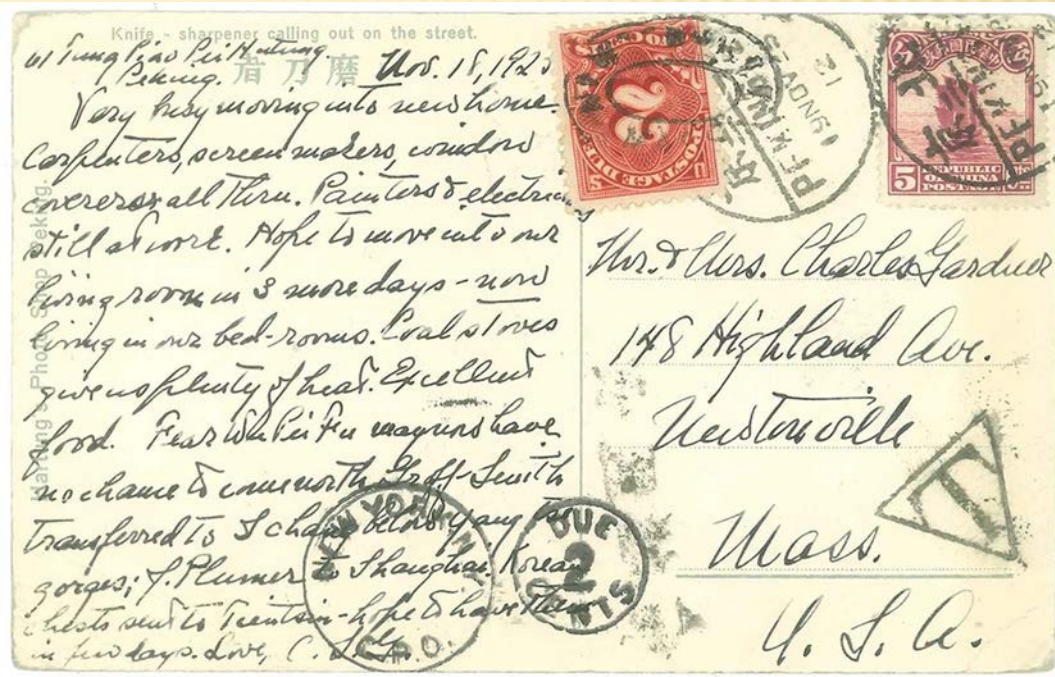 Knife - sharpener calling out on the street.
者刀磨
61 Tung Piao Pei Hutung
Peking. Nov. 18, 1925
Very busy moving into new home.
Carpenters, screen makers, window
coverers all thru. Painters & electricians
still at work. Hope to move into our
living room in 3 more days - now
living in our bed-rooms. Coal stoves
give us plenty of heat. Excellent
food. Fear Wu Pei Fu may not have
no chance to come north. Groff-Smith
transferred to Ichang below Yang
gorges; J. Plumer to Shanghai. Korean
chests sent to Tientsin - hope to have them
in few days. Love, C.
Hartung's Photo Shop Peking.
POSTAGE DUE
2
CENTS
PEKING
19 NOV
12
北京
5
REPUBLIC
OF CHINA
POSTAGE
Mr. & Mrs. Charles Gardner
148 Highland Ave.
Newtonville
Mass.
U. S. A.
T
NEW YORK, N.Y.
G.P.O.
DUE
2
CENTS